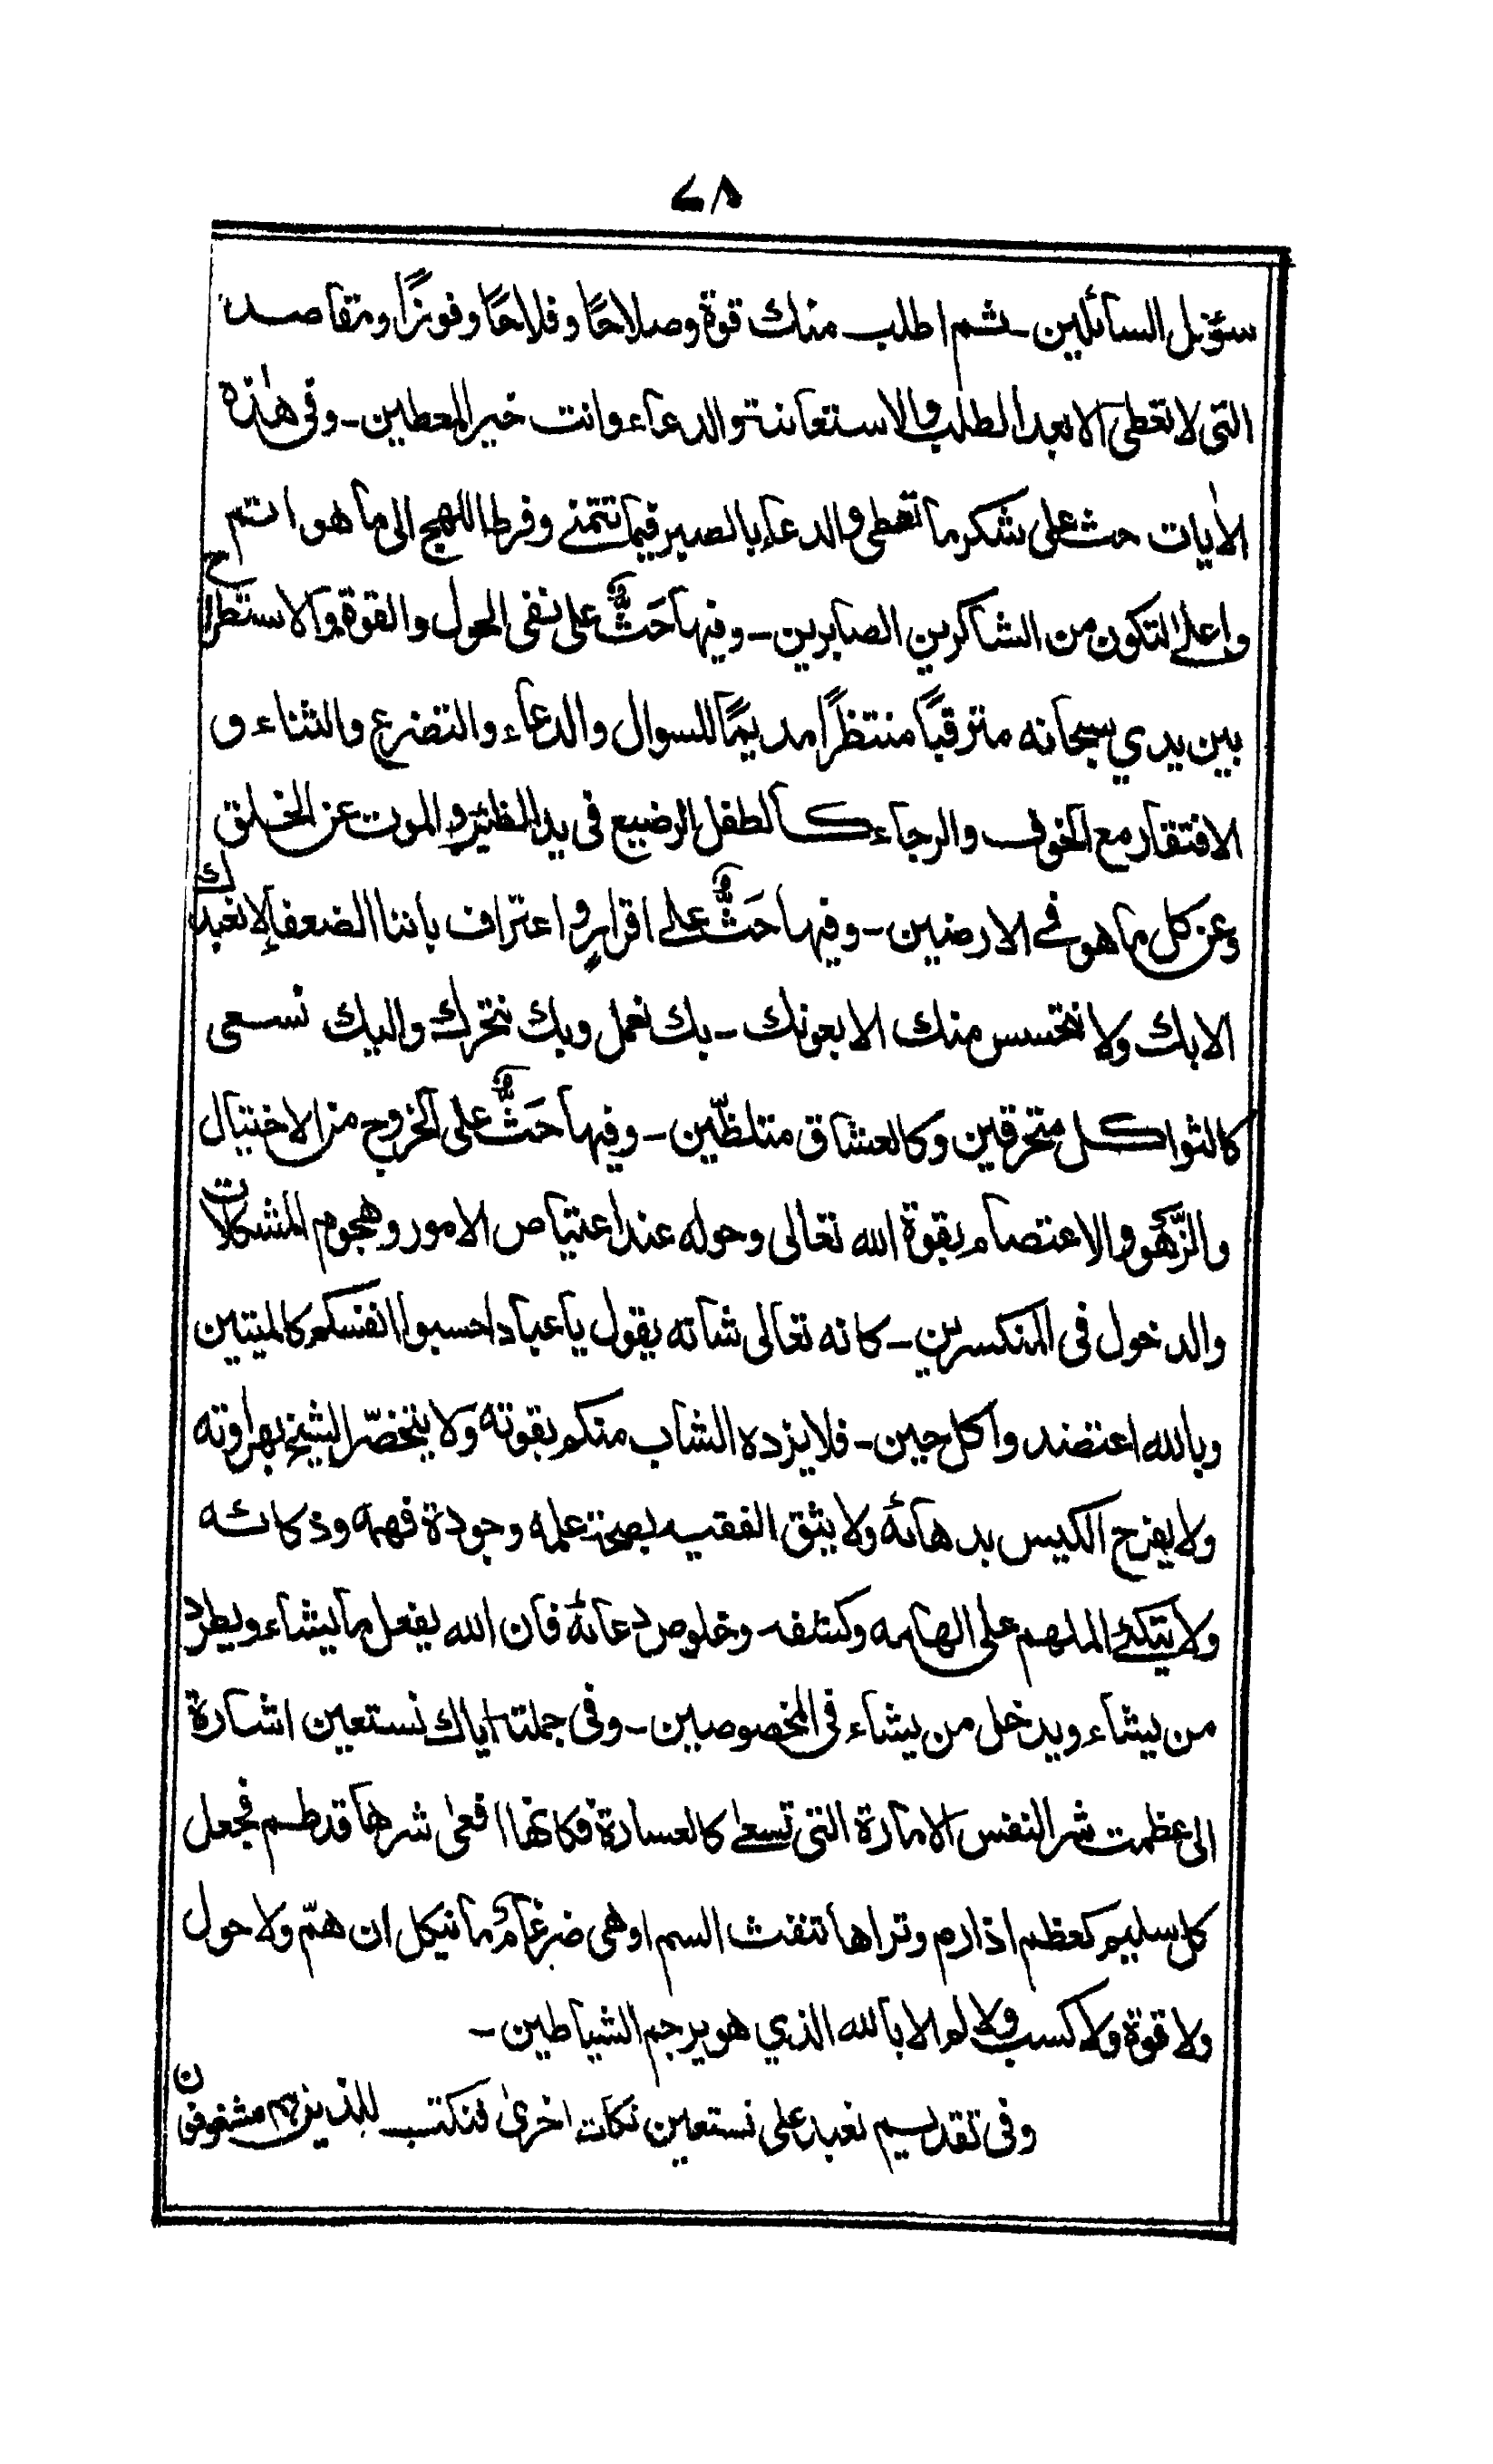 ٧٨
سؤل السائلين ـ ثم اطلب منك قوة وصلاحًا وفلاحًا وفوزًا ومقاصد
التى لا تعطى الا بعد الطلب والاستعانة والدعاء وانت خير المعطين ـ وفى هٰذه
الاٰيات حث على شكر ما تعطى والدعاء بالصبر فيما تتمنے وفرط اللهج الى ما هو اتم
واعلےٰ لتكون من الشاكرين الصابرين ـ وفيها حَثٌّ على نفى الحول والقوة والاستطراح
بين يدي سبحانه مترقبًا منتظرًا مديمًا للسوال والدعاء والتضرع والثناء و
الافتقار مع الخوف والرجاء كالطفل الرضيع فى يد الظئر والموت عن الخلق
وعن كل ما هو فے الارضين ـ وفيها حَثٌّ علے اقرارٍ واعتراف باننا الضعفاء لا نعبدك
الا بك ولا نتحسس منك الا بعونك ـ بك نعمل وبك نتحرك واليك نسعى
كالثواكل متحرقين وكالعشاق متلظّين ـ وفيها حَثٌّ على الخروج من الاختيال
والزَّهو والاعتصام بقوة الله تعالى وحوله عند اعتياص الامور وهجوم المشكلات
والدخول فى المنكسرين ـ كانه تعالى شانه يقول يا عباد احسبوا انفسكم كالميتين
وبالله اعتضدوا كل حين ـ فلا يزده الشاب منكم بقوته ولا يتخصّر الشيخ بهراوته
ولا يفرح الكيس بدهائه ولا يثق الفقيه بصحة علمه وجودة فهمه وذكائه
ولا يتكئ الملهم على الهامه وكشفه وخلوص دعائه فان الله يفعل ما يشاء ويطرد
من يشاء ويدخل من يشاء فى المخصوصين ـ وفى جملة اياك نستعين اشارة
الى عظمت شر النفس الامارة التى تسعےٰ كالعسارة فكانها افعى شرها قد طم فجعل
كل سليم كعظم اذا رم وتراها تنفث السم او هى ضرغامٌ ما نيكل ان همّ ولا حول
ولا قوة ولا كسب ولا لم الا بالله الذي هو يرجم الشياطين ـ
وفى تقديم نعبد على نستعين نكات اخرىٰ فنكتب للذين هم مشغوفون